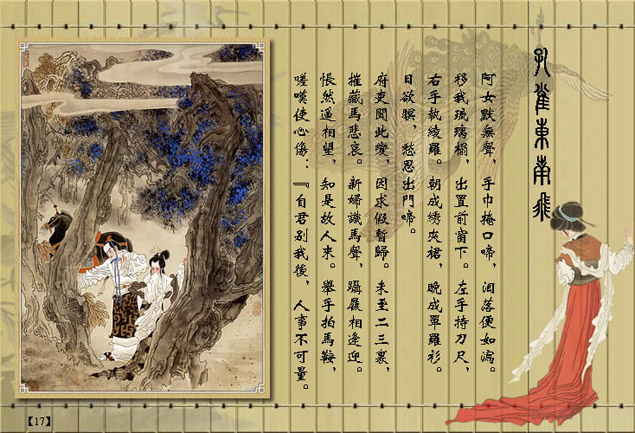 孔雀東南飛
阿女默無聲，手巾掩口啼，泪落便如瀉。
移我琉璃榻，出置前窗下。左手持刀尺，
右手執綾羅。朝成绣夾裙，晚成單羅衫。
日欲暝，愁思出門啼。
府吏聞此變，因求假暫歸。未至二三裏，
摧藏馬悲哀。新婦識馬聲，躡履相逢迎。
悵然遥相望，知是故人來。舉手拍馬鞍，
嗟嘆使心傷：『自君别我後，人事不可量。
【17】